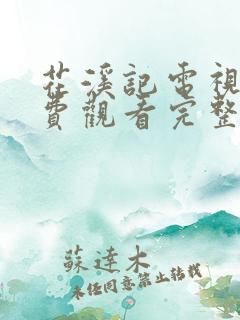 花溪記電視
費觀看完整
蘇達木
未經同意禁止轉載